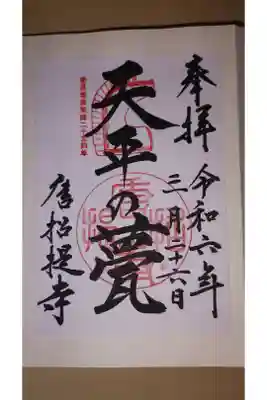 奉拝
令和六年
三月二十六日
天平の甍
唐招提寺